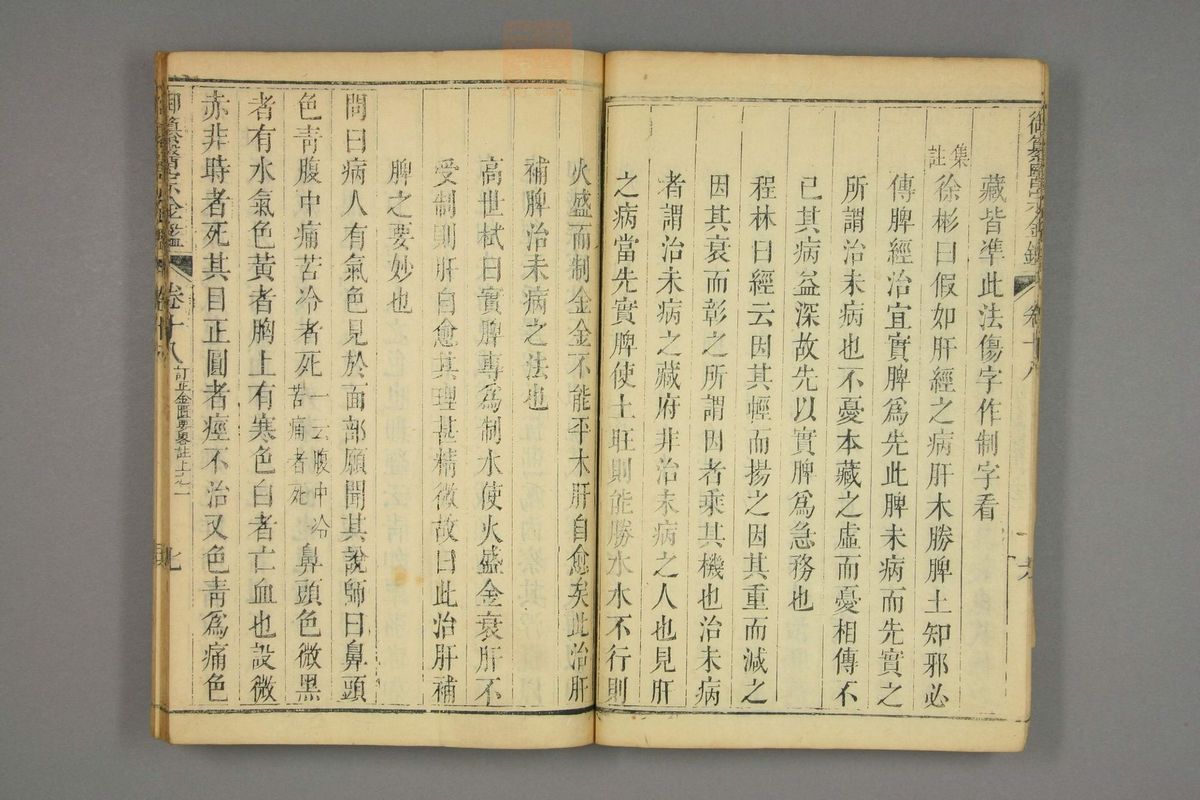 藏皆準此法傷字作制字看
集註
徐彬曰假如肝經之病肝木勝脾土知邪必
傳脾經治宜實脾爲先此脾未病而先實之
所謂治未病也不憂本藏之虛而憂相傳不
已其病益深故先以實脾爲急務也
程林曰經云因其輕而揚之因其重而減之
因其衰而彰之所謂因者乘其機也治未病
者謂治未病之藏府非治未病之人也見肝
之病當先實脾使土旺則能勝水水不行則
火盛而制金金不能平木肝自愈矣此治肝
補脾治未病之法也
高世栻曰實脾專爲制水使火盛金衰肝不
受制則肝自愈其理甚精微故曰此治肝補
脾之要妙也
問曰病人有氣色見於面部願聞其說師曰鼻頭
色靑腹中痛苦冷者死一云腹中冷苦痛者死鼻頭色微黑
者有水氣色黃者胸上有寒色白者亡血也設微
赤非時者死其目正圓者痙不治又色靑爲痛色
御纂醫宗金鑑
卷十八
訂正金匱要畧註上之一